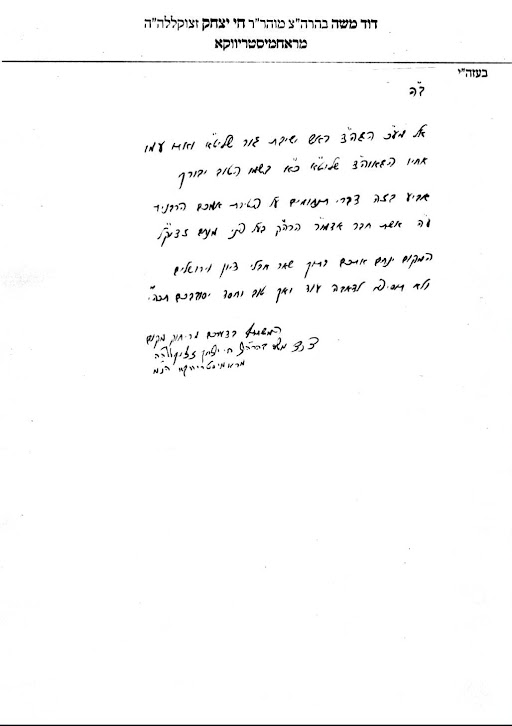 דוד משה בהרה"צ מוהר"ר חי יצחק זצוקללה"ה
מראחמיסטריווקא
בעזה"י
ב"ה
אל מע"כ הגה"צ ראש ישיבת גור שליט"א ואתו עמו
אחיו הגאוה"צ שליט"א כ"א בשמו הטוב יבורך
אביע בזה דברי תנחומים על פטירת אמכם הרבנית
ע"ה אשת חבר אדמו"ר הרה"ק בעל פני מנחם זצוק"ל
המקום ינחם אתכם בתוך שאר אבלי ציון וירושלים
ולא תוסיפו לדאבה עוד ואך טוב וחסד ירדפוכם
המשתתף בצערכם מריחוק מקום
דוד משה בהרה"צ חי יצחק זצוקללה"ה
מראחמיסטריווקא